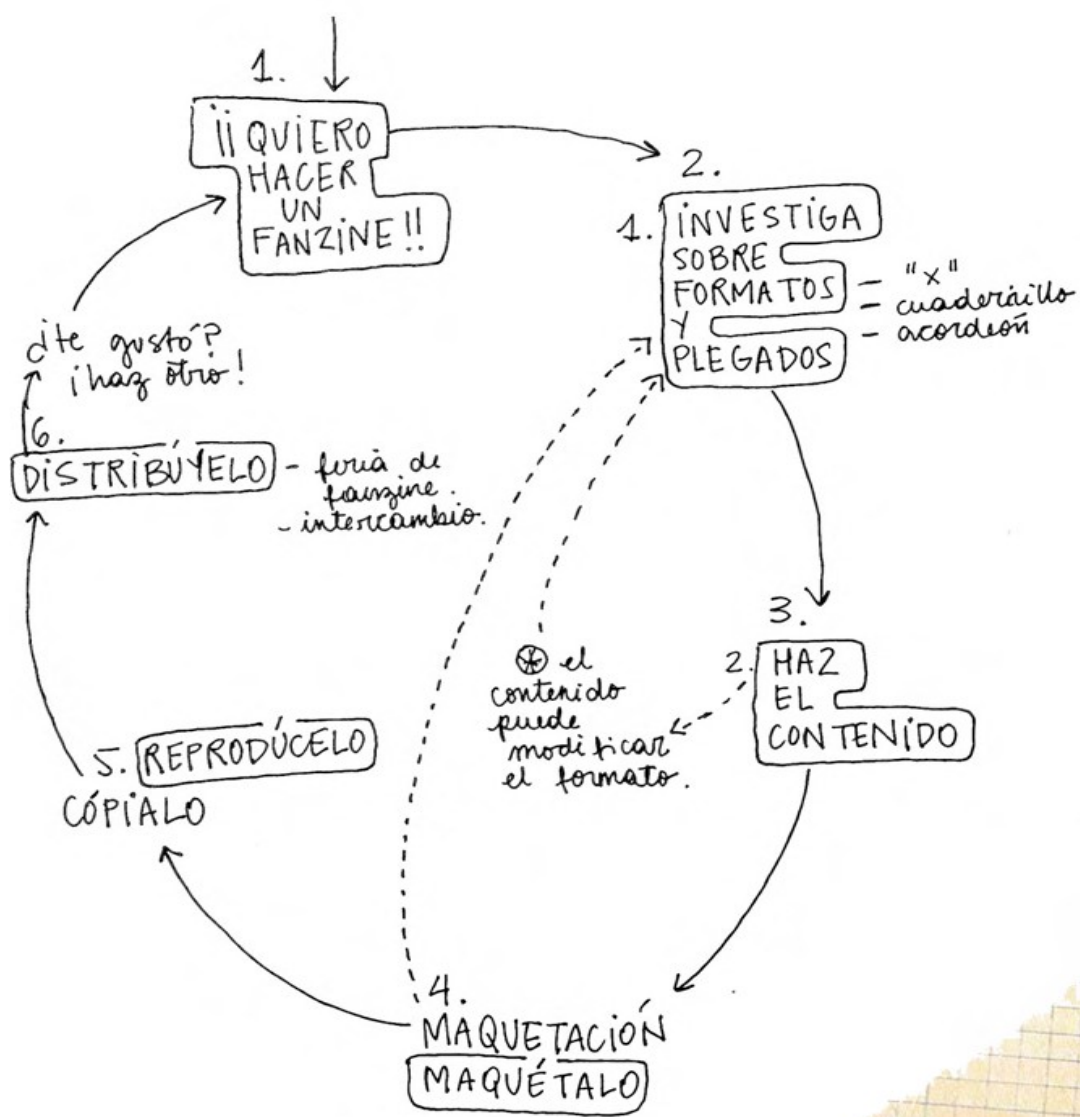 1.
¡¡QUIERO
HACER
UN
FANZINE!!
2.
1. INVESTIGA
SOBRE
FORMATOS
Y
PLEGADOS
- "x"
- cuadernillo
- acordeón
3.
2. HAZ
EL
CONTENIDO
el
contenido
puede
modificar
el formato.
4.
MAQUETACIÓN
MAQUÉTALO
5. REPRODÚCELO
CÓPIALO
6.
DISTRIBÚYELO - feria de
fanzine.
- intercambio.
¿te gustó?
¡haz otro!